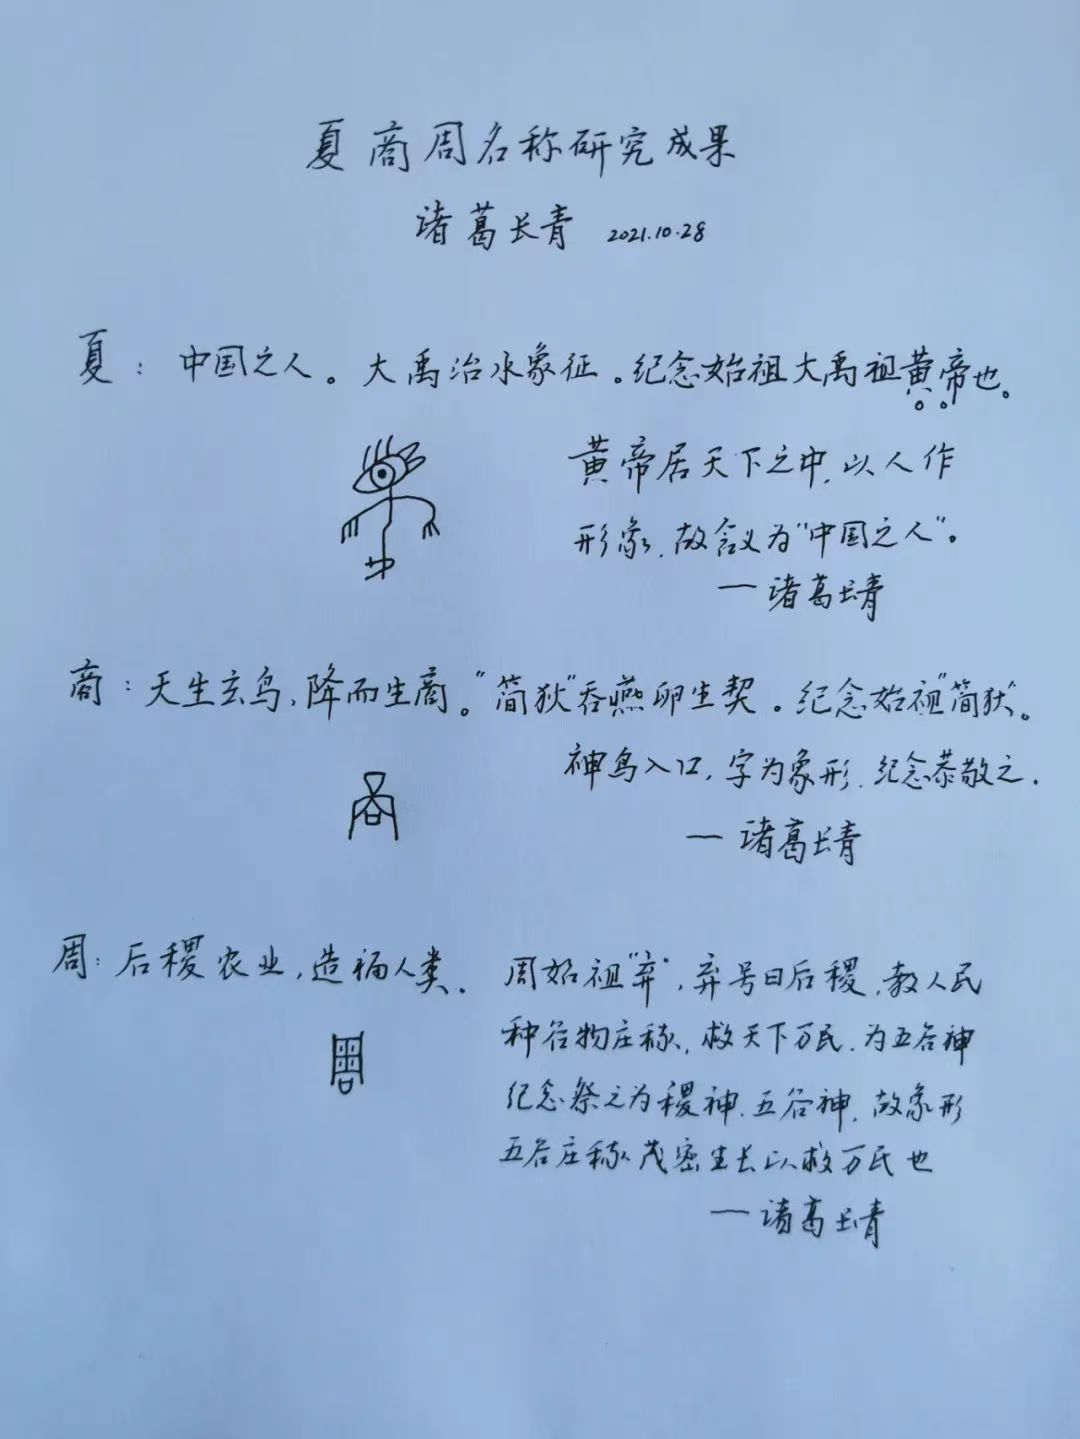 夏商周名称研究成果
诸葛长青 2021.10.28
夏：中国之人。大禹治水象征。纪念始祖大禹祖黄帝也。
黄帝居天下之中，以人作
形象，故含义为“中国之人”。
—诸葛长青
商：天生玄鸟，降而生商。“简狄”吞燕卵生契。纪念始祖“简狄”。
神鸟入口，字为象形，纪念恭敬之.
—诸葛长青
周：后稷农业，造福人类. 周始祖“弃”，弃号曰后稷，教人民
种谷物庄稼，救天下万民.为五谷神
纪念祭之为稷神.五谷神，故象形
五谷庄稼茂密生长以救万民也
—诸葛长青